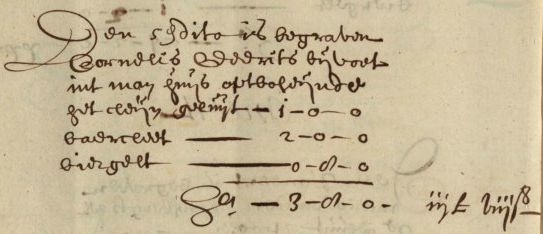 Den 5 dito is begraven
Cornelis Weerits bijvoet
int man huijs opt boheijnde
het cleijn geluijt — 1 - 0 - 0
baercleet — 2 - 0 - 0
biergelt — 0 - 8 - 0
Sa — 3 - 8 - 0 - iij £ viij ß